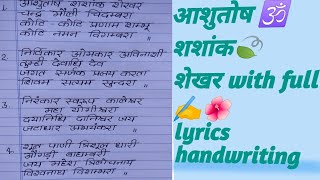 आशुतोष शशांक शेखर
चन्द्र मौली चिदम्बरा
कोटि - कोटि प्रणाम शम्भू
कोटि नमन दिगम्बरा
2. निर्विकार ओमकार अविनाशी
तुम्ही देवाधि देव
जगत सर्जक प्रलय करता
शिवम सत्यम सुन्दरा
3. निरंकार स्वरूप कालेश्वर
महा योगीश्वरा
दयानिधि दानिश्वर जय
जटाधार अभयंकरा
4. शूल पाणी त्रिशूल धारी
औगड़ी बाघम्बरी
जय महेश त्रिलोचनाय
विश्वनाथ विशम्भरा
आशुतोष 🕉️
शशांक🍃
शेखर with full
✍️🌺
lyrics
handwriting